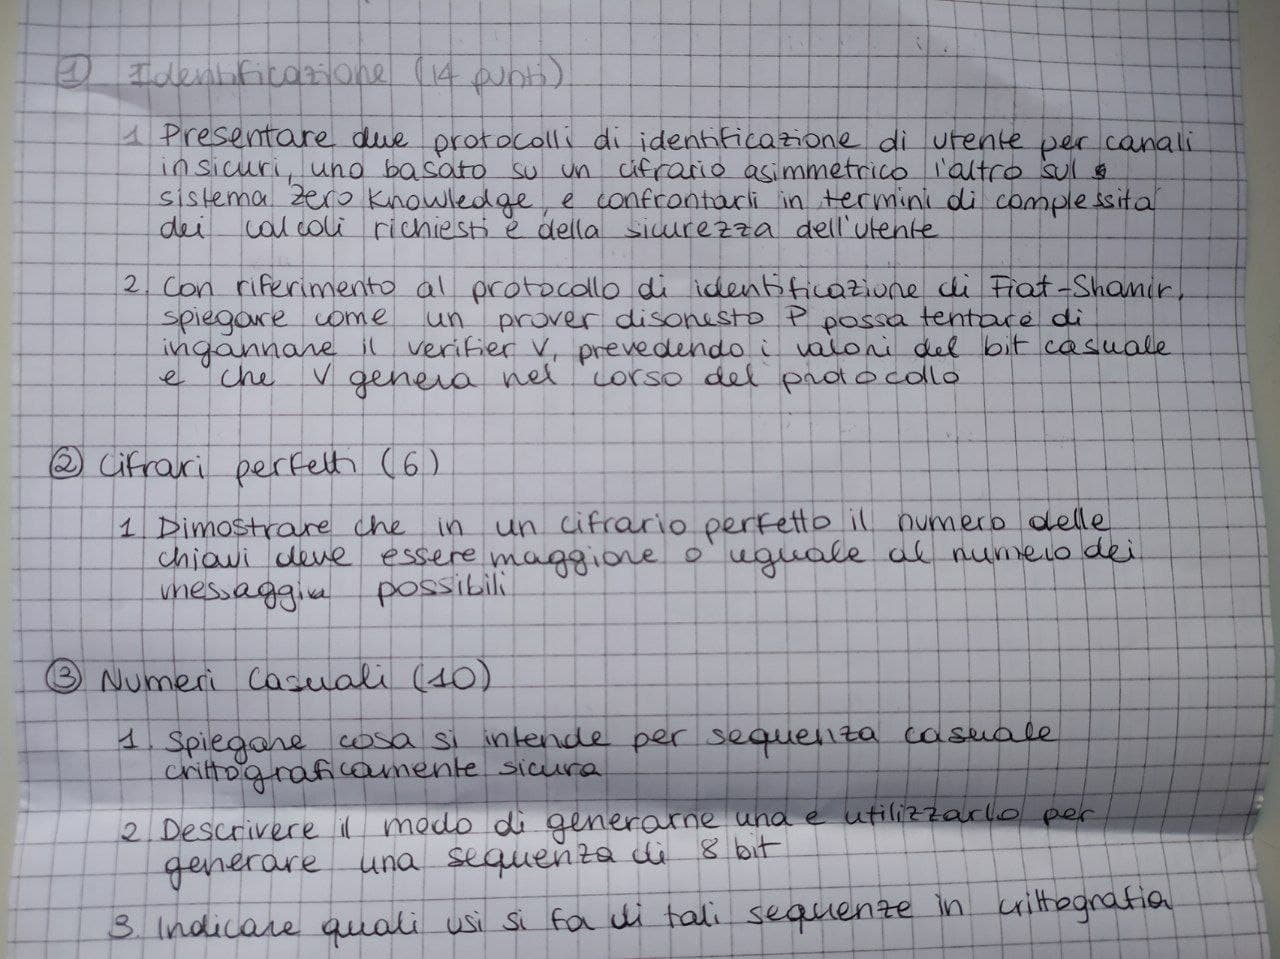 ① Identificazione (14 punti)
1 Presentare due protocolli di identificazione di utente per canali
insicuri, uno basato su un cifrario asimmetrico l'altro sul
sistema zero knowledge, e confrontarli in termini di complessità
dei calcoli richiesti e della sicurezza dell'utente
2. Con riferimento al protocollo di identificazione di Fiat-Shamir,
spiegare come un prover disonesto P possa tentare di
ingannare il verifier V, prevedendo i valori del bit casuale
e che V genera nel corso del protocollo
② Cifrari perfetti (6)
1 Dimostrare che in un cifrario perfetto il numero delle
chiavi deve essere maggiore o uguale al numero dei
messaggi possibili
③ Numeri casuali (10)
1. Spiegare cosa si intende per sequenza casuale
crittograficamente sicura
2. Descrivere il modo di generarne una e utilizzarlo per
generare una sequenza di 8 bit
3. Indicare quali usi si fa di tali sequenze in crittografia